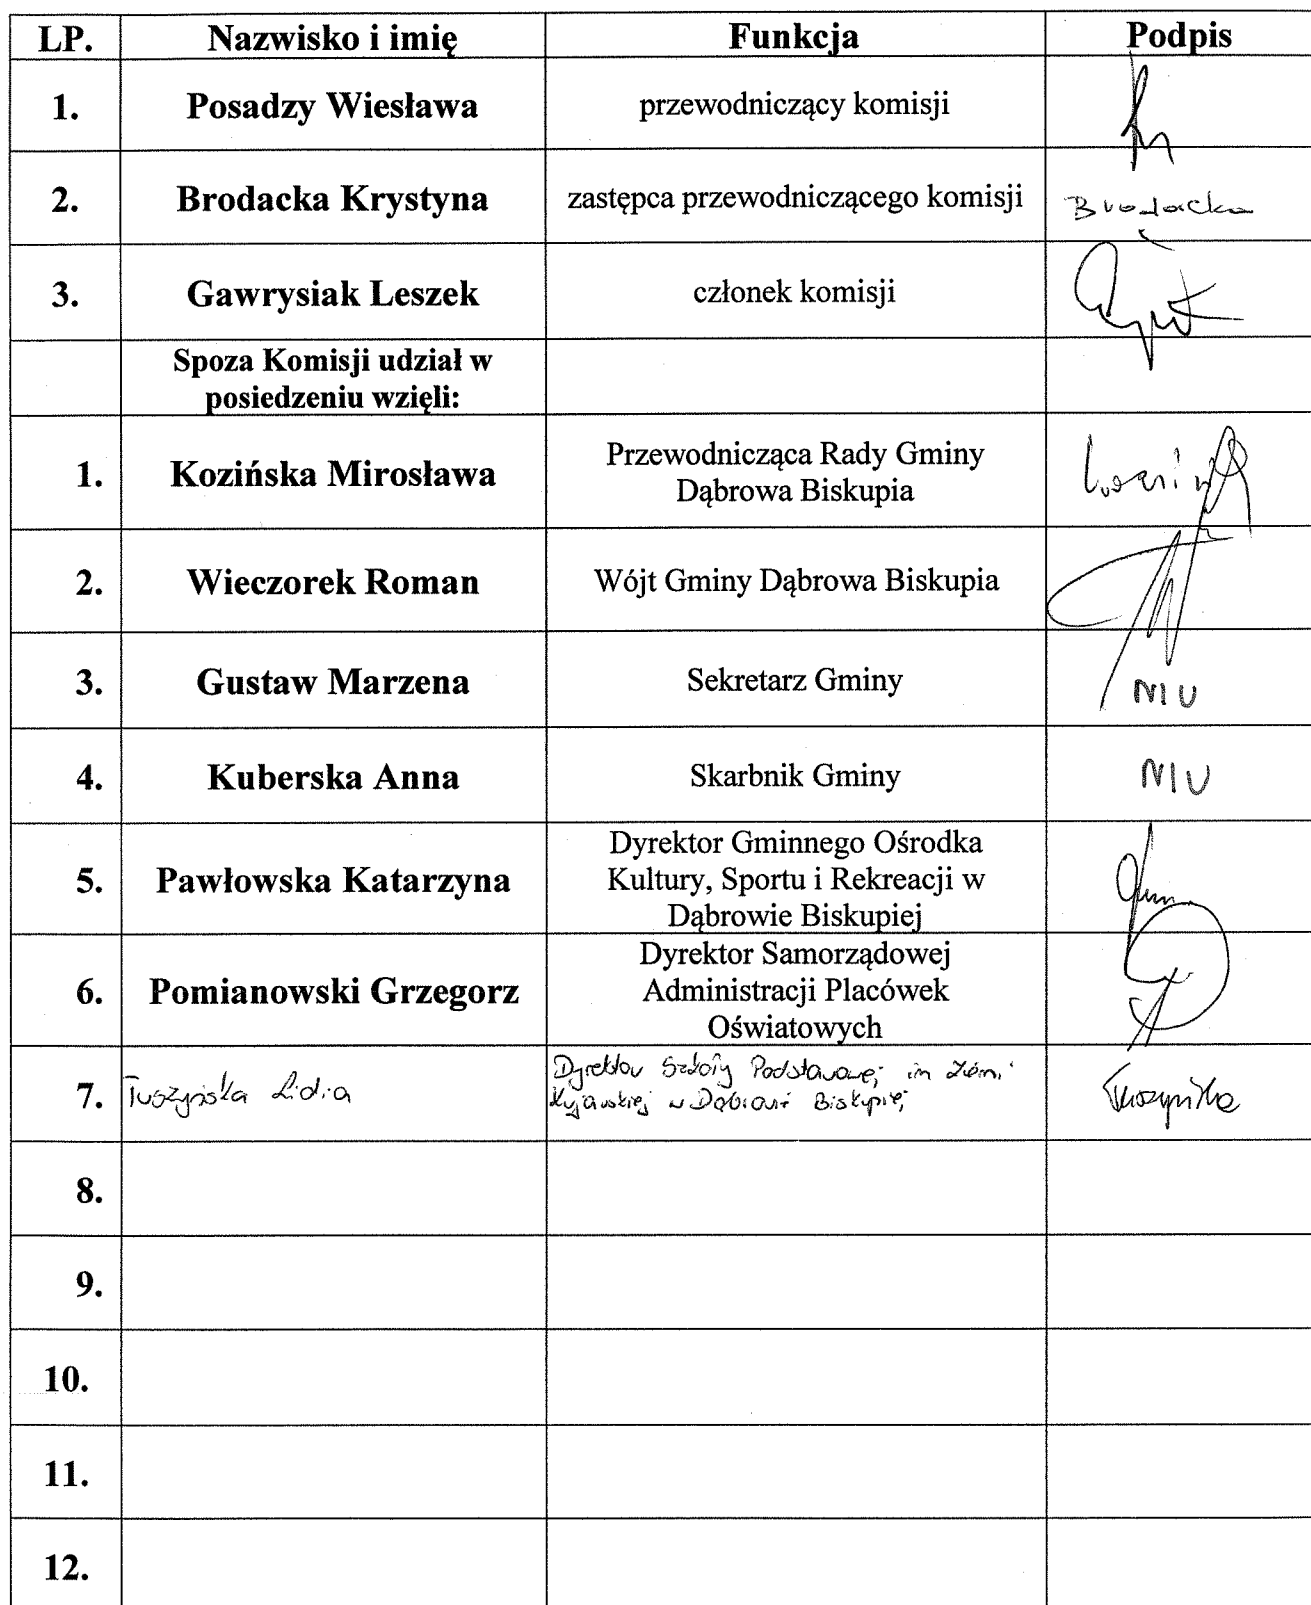 LP. Nazwisko i imię Funkcja Podpis
1. Posadzy Wiesława przewodniczący komisji
2. Brodacka Krystyna zastępca przewodniczącego komisji Brodacka
3. Gawrysiak Leszek członek komisji
Spoza Komisji udział w
posiedzeniu wzięli:
1. Kozińska Mirosława Przewodnicząca Rady Gminy
Dąbrowa Biskupia
2. Wieczorek Roman Wójt Gminy Dąbrowa Biskupia
3. Gustaw Marzena Sekretarz Gminy NIU
4. Kuberska Anna Skarbnik Gminy NIU
Dyrektor Gminnego Ośrodka
5. Pawłowska Katarzyna Kultury, Sportu i Rekreacji w
Dąbrowie Biskupiej
Dyrektor Samorządowej
6. Pomianowski Grzegorz Administracji Placówek
Oświatowych
7. Tuszyńska Lidia Dyrektor Szkoły Podstawowej im Ziemi Tuszyńska
Kujawskiej w Dąbrowie Biskupiej
8.
9.
10.
11.
12.